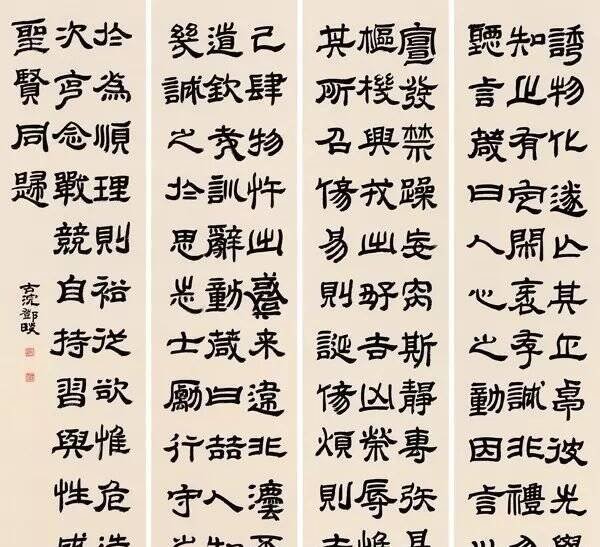 誘物化遂亡其正卓彼先
知止有定閑衺存誠非禮
聽言箴曰人心之動因言
宣發禁躁妄內斯靜專矧是
樞機興戎出好吉凶榮辱惟
其所召傷易則誕傷煩則
己肆物忤出悖來違非灋
道欽哉訓辭動箴曰喆人知
幾誠之於思志士勵行守
於為順理則裕從欲惟危造
次克念戰兢自持習與性成
聖賢同歸
古浣鄧琰